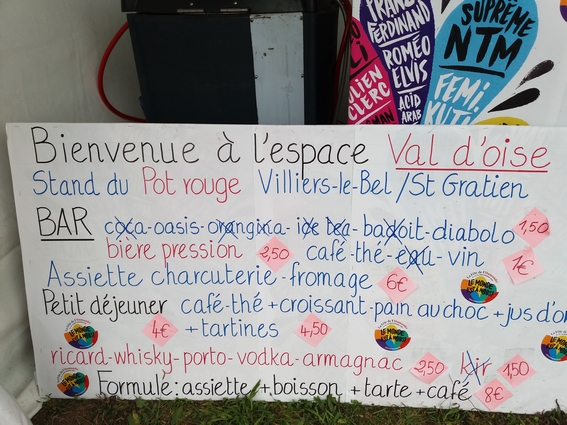 FRANZ
FERDINAND
ROMÉO
ELVIS
ACID
ARAB
JULIEN
CLERC
SUPRÊME
NTM
FEMI
KUTI
Bienvenue à l'espace Val d'oise
Stand du Pot rouge Villiers-le-Bel / St Gratien
BAR coca-oasis-orangina-ice tea-badoit-diabolo 1,50
bière pression 2,50 café-thé-eau-vin 1€
Assiette charcuterie-fromage 6€
Petit déjeuner café-thé+croissant-pain au choc+jus d'or
4€ +tartines 4,50
LE MONDE
EST À NOUS
ricard-whisky-porto-vodka-armagnac 250 kir 150
Formule: assiette +boisson +tarte+café 8€